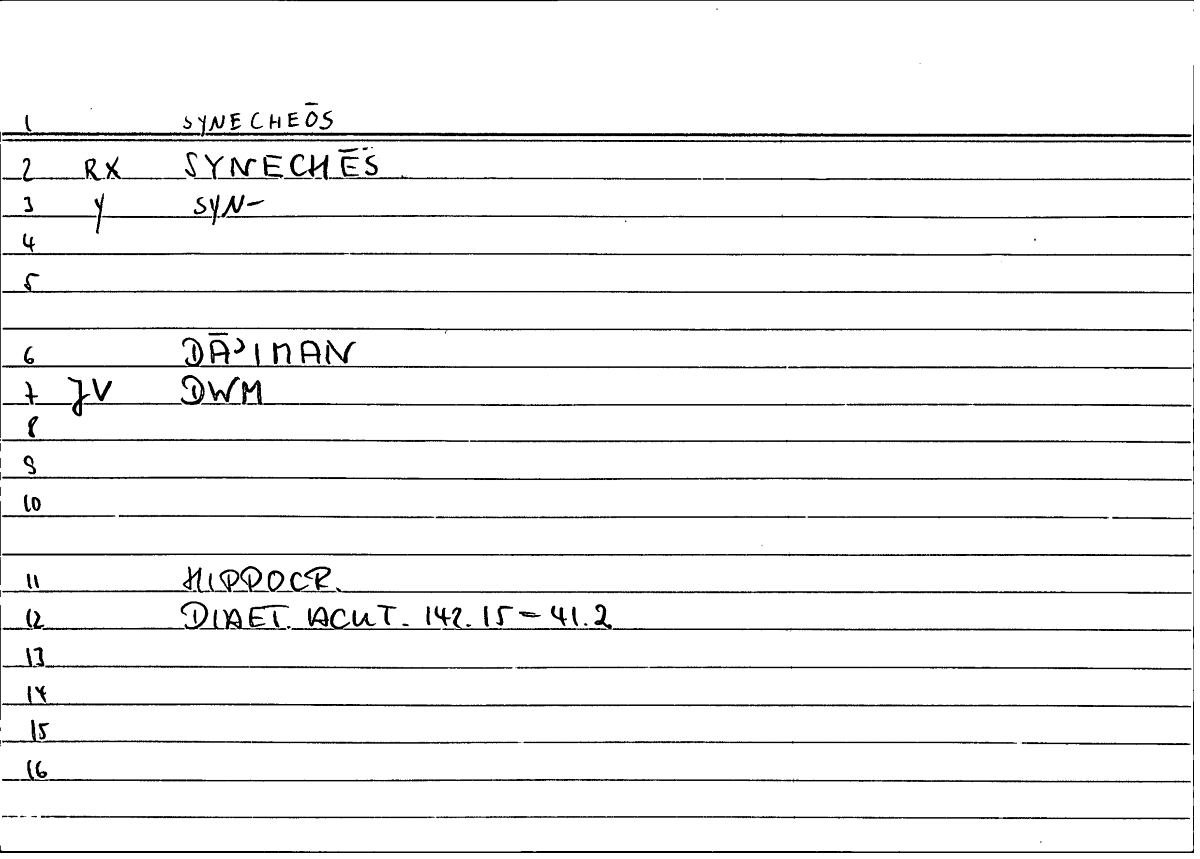 1 SYNECHEŌS
2 RX SYNECHĒS
3 Y SYN-
4
5
6 DĀʾIMAN
7 JV DWM
8
9
10
11 HIPPOCR.
12 DIAET. ACUT. 142.15 = 41.2
13
14
15
16